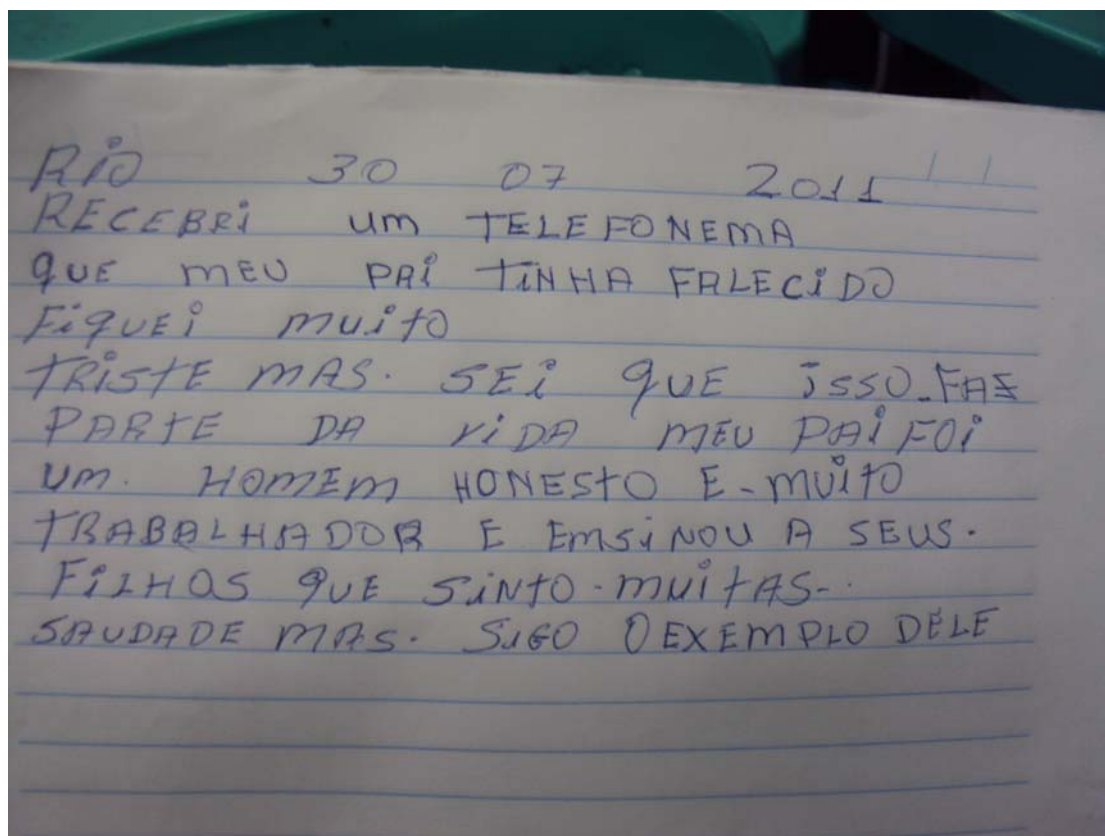 Rio 30 07 2011
RECEBRi um TELEFONEMA
QUE MEU PAi TiNHA FALECiDO
FiQUEi muito
TRiSTE MAS. SEi QUE iSSO-FAZ
PARTE DA ViDA MEU PAi FOi
um. HOMEM HONESTO E-MUiTO
TRABALHADOR E EMSiNOU A SEUS.
FiLHOS QUE SiNTO-MUiTAS-.
SAUDADE MAS. SiGO O EXEMPLO DELE